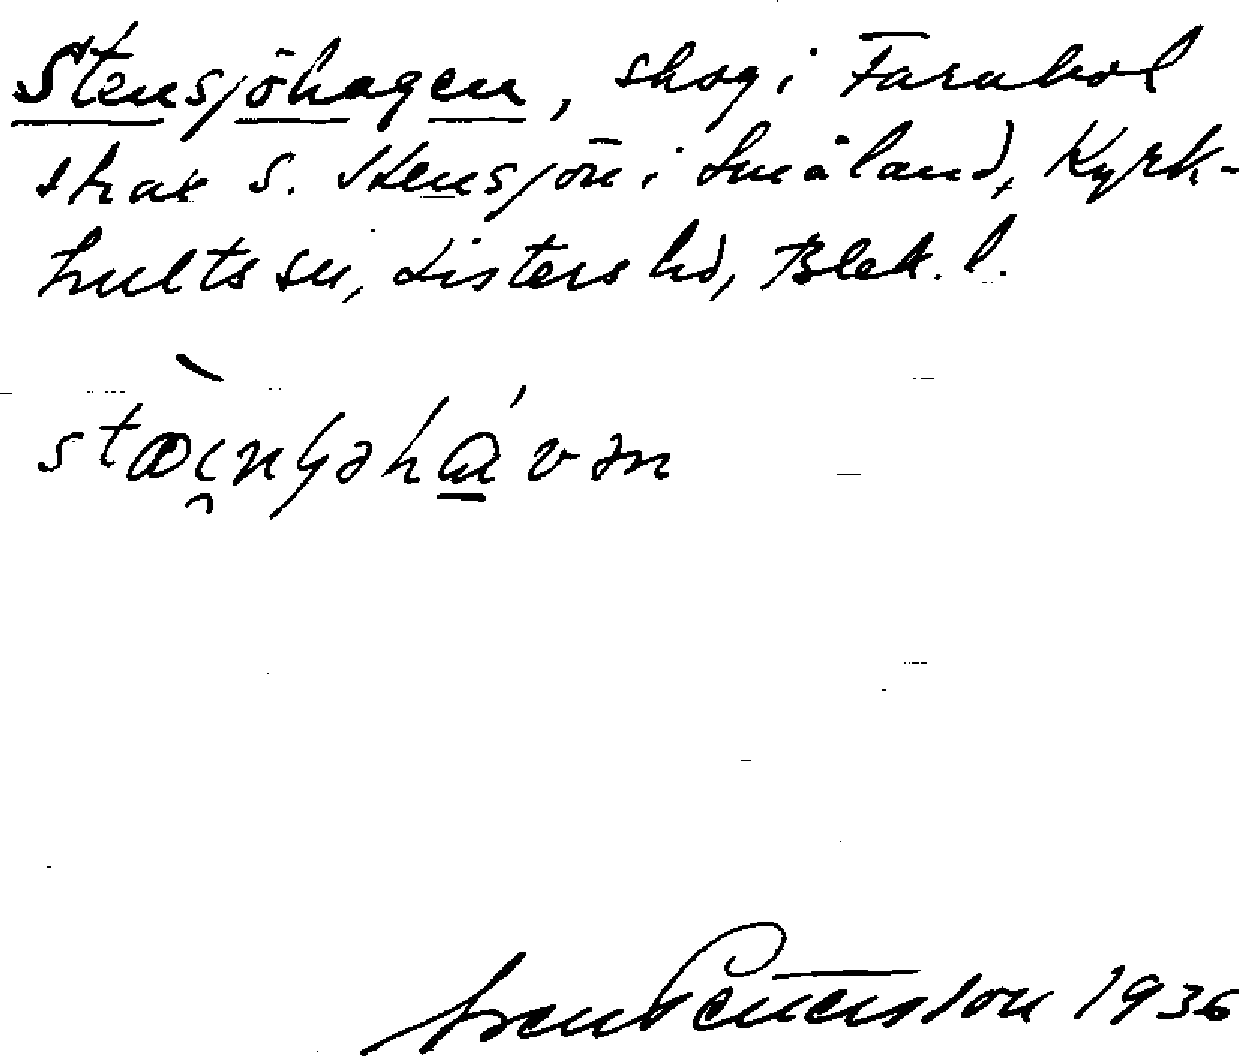 Stensjöhagen, skog i Farabol
strax S. Stensjön i Småland, Kyrk-
hults sn, Listers hd, Blek. l.
stæi̯nʃəhávən
Sven Pettersson 1936